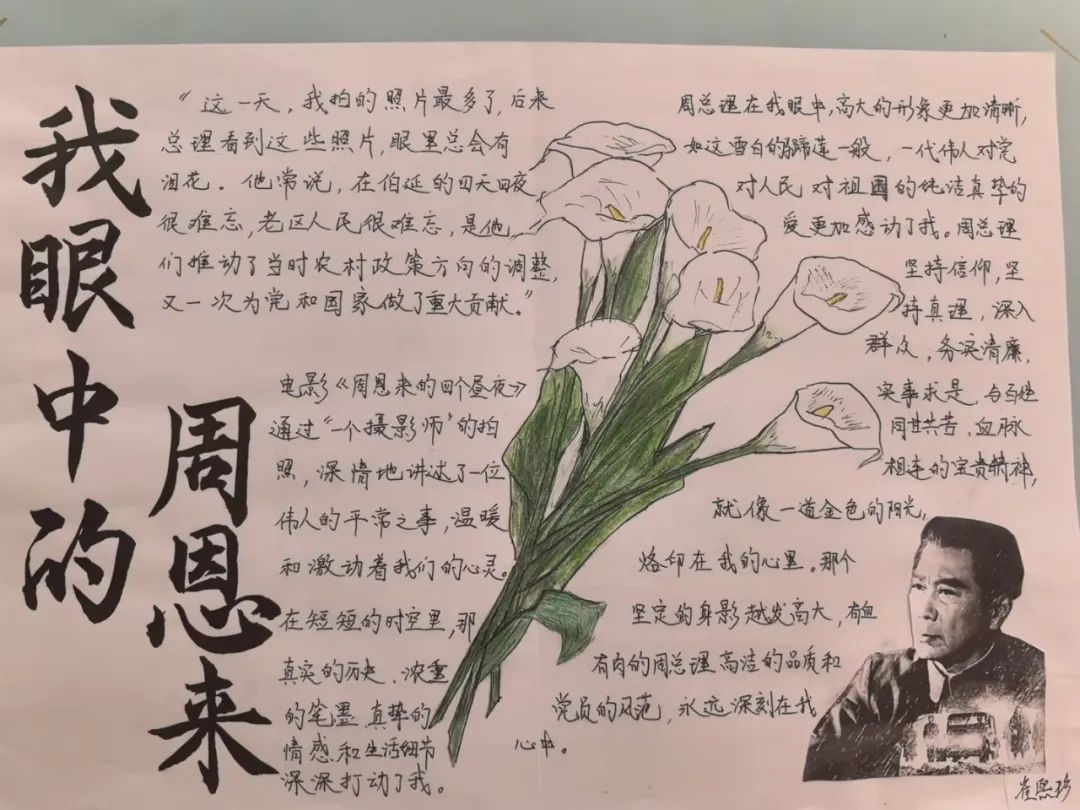 我眼中的
周恩来
“这一天，我拍的照片最多了，后来
总理看到这些照片，眼里总会有
泪花。他常说，在伯延的四天四夜
很难忘，老区人民很难忘，是他
们推动了当时农村政策方向的调整，
又一次为党和国家做了重大贡献。”
电影《周恩来的四个昼夜》
通过“一个摄影师”的拍
照，深情地讲述了一位
伟人的平常之事，温暖
和激动着我们的心灵。
在短短的时空里，那
真实的历史、浓重
的笔墨、真挚的
情感和生活细节
深深打动了我。
周总理在我眼中，高大的形象更加清晰，
如这雪白的马蹄莲一般，一代伟人对党
对人民 对祖国的纯洁真挚的
爱更加感动了我。周总理
坚持信仰，坚
持真理，深入
群众，务实清廉，
实事求是，与百姓
同甘共苦，血脉
相连的宝贵精神，
就像一道金色的阳光，
烙印在我的心里。那个
坚定的身影越发高大，有血
有肉的周总理高洁的品质和
党员的风范，永远深刻在我
心中。
崔熙珍